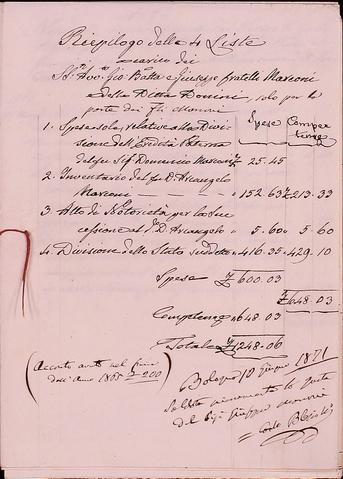 Riepilogo delle 4 Liste
a carico dei
Sr. Avo. Gio. Batta e Giuseppe fratelli Marconi
e della Ditta Donini, solo per la
parte dei flli Marconi
Spese Competenze
1. Spese solo, relative alla Divisione
dell'Eredità Paterna
del fu Sig Domenico Marconi £ 25.45
2. Inventario del fu D. Arcangelo
Marconi " 152.63 £ 213.33
3. Atto di Notorietà per la Successione
al fu D. Arcangelo " 5.60 " 5.60
4. Divisione dello Stato suddetto " 416.35 " 429.10
Spese £ 600.03
£ 648.03
Competenze " 648.03
Totale £ 1248.06
(Acconto avuto nel
dell'Anno 1865 £ 200)
Bologna 10 Giugno 1871
Saldato la parte
del Sig. Giuseppe Marconi